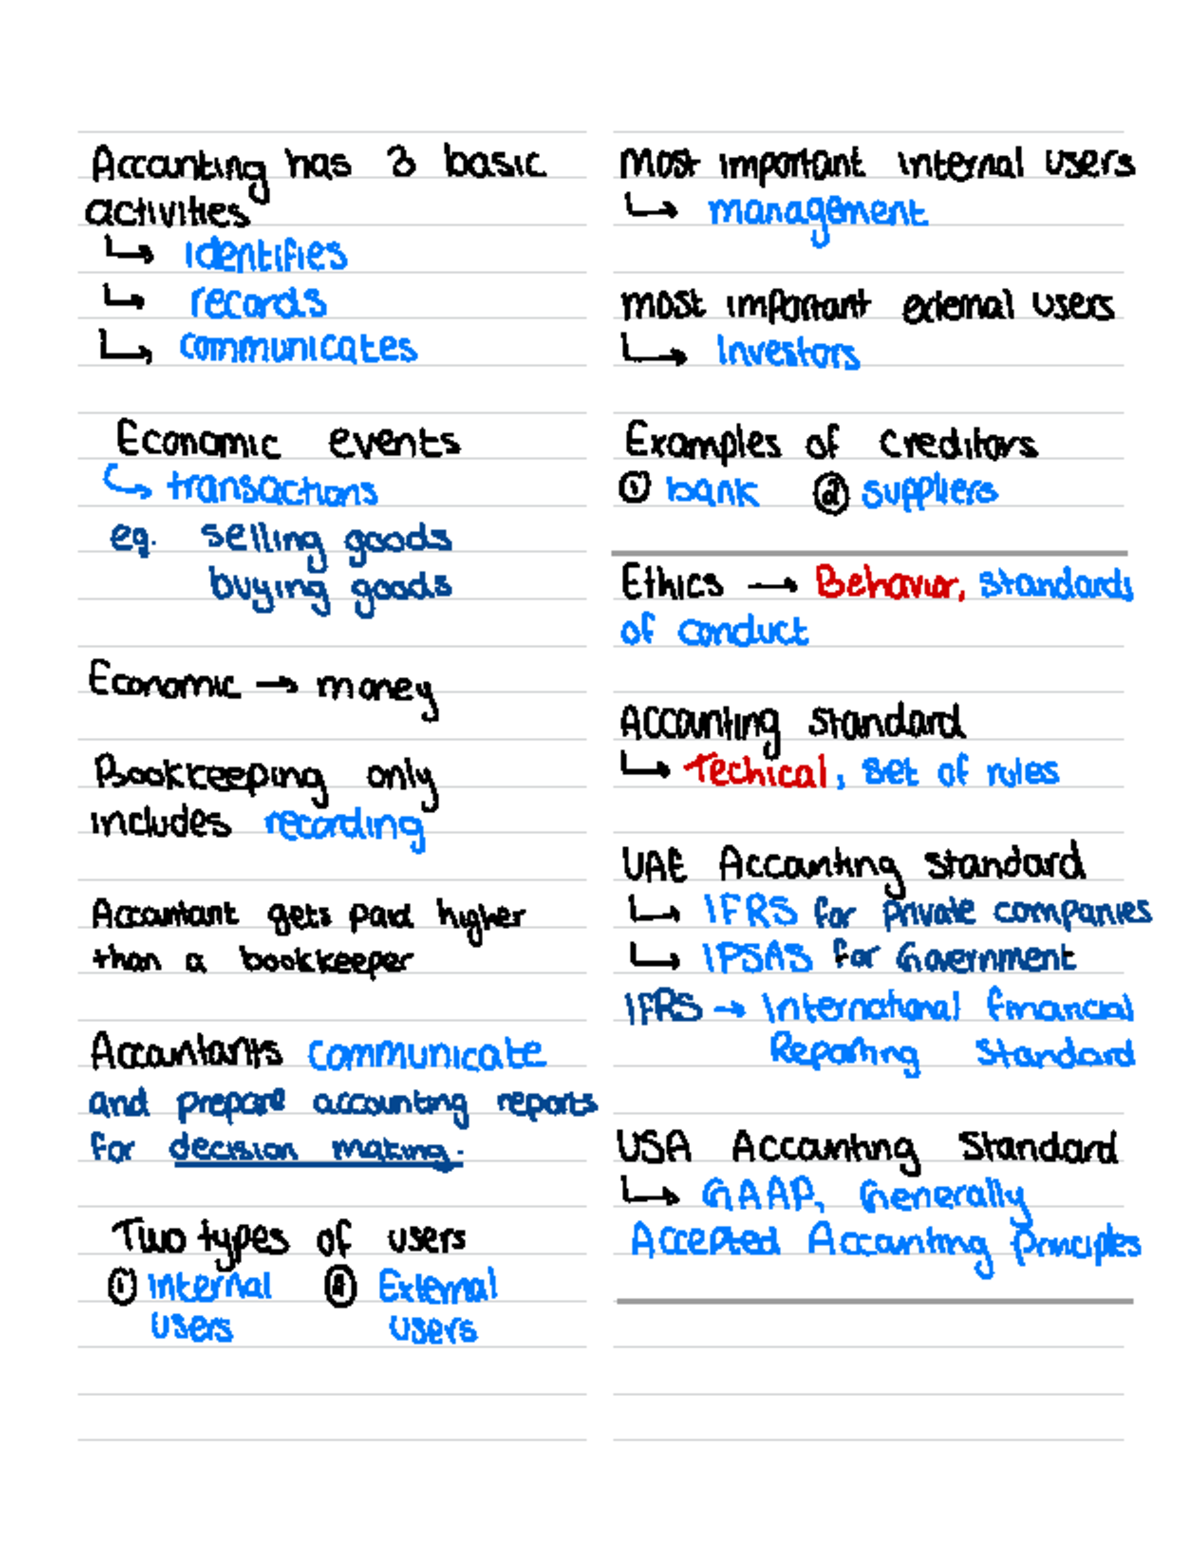 Accounting has 3 basic
activities
↳ identifies
↳ records
↳ communicates
Economic events
↳ transactions
eg. selling goods
buying goods
Economic → money
Bookkeeping only
includes recording
Accountant gets paid higher
than a bookkeeper
Accountants communicate
and prepare accounting reports
for decision making.
Two types of users
① Internal ② External
users users
most important internal users
↳ management
most important external users
↳ Investors
Examples of creditors
① bank ② suppliers
Ethics → Behavior, standards
of conduct
Accounting standard
↳ Techical, set of rules
UAE Accounting standard
↳ IFRS for private companies
↳ IPSAS for Government
IFRS → International financial
Reporting Standard
USA Accounting Standard
↳ GAAP, Generally
Accepted Accounting principles